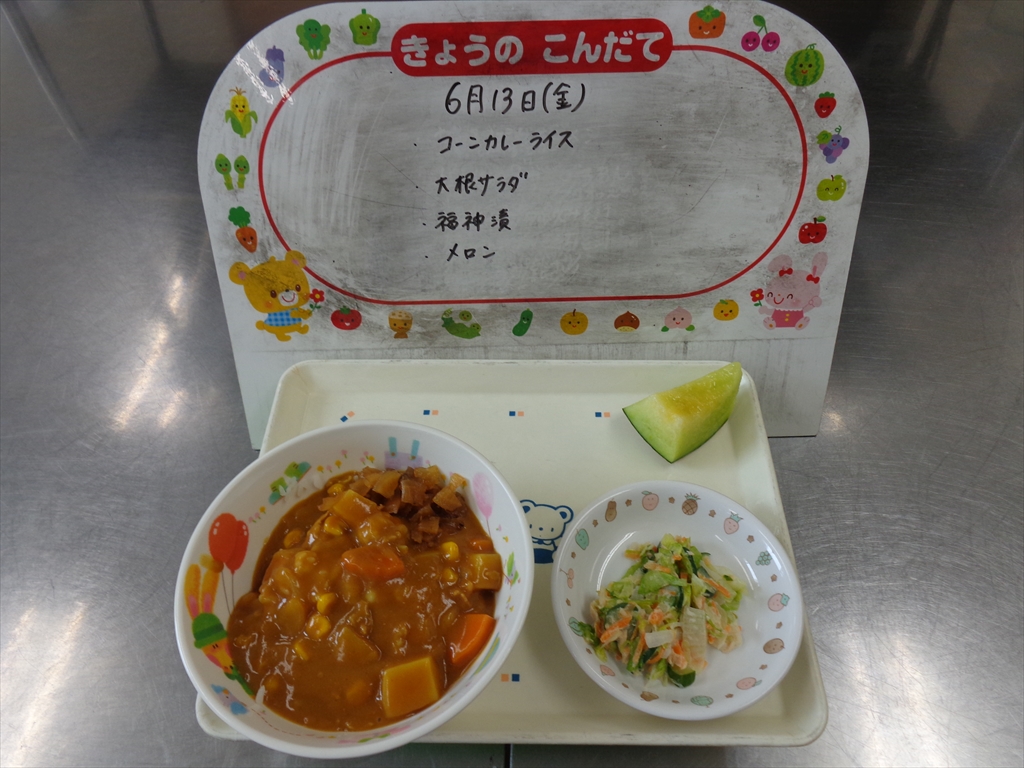 きょうの こんだて
6月13日(金)
・コーンカレーライス
・大根サラダ
・福神漬
・メロン